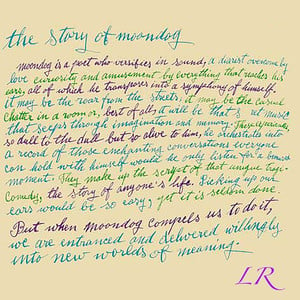 the story of moondog
moondog is a poet who versifies in sound, a diarist overcome by
love curiosity and amusement by everything that reaches his
ears, all of which he transposes into a symphony of himself.
it may be the roar from the streets, it may be the casual
chatter in a room or, best of all, it will be the secret music
that seeps through imagination and memory. These vagaries,
so dull to the dull but so alive to him, he orchestrates into
a record of those enchanting conversations everyone
can hold with himself would he only listen for a
moment. They make up the script of that unique tragi-
comedy, the story of anyone's life. Picking up our
ears would be so easy, yet it is seldom done.
But when moondog compels us to do it,
we are entranced and delivered willingly
into new worlds of meaning.
LR